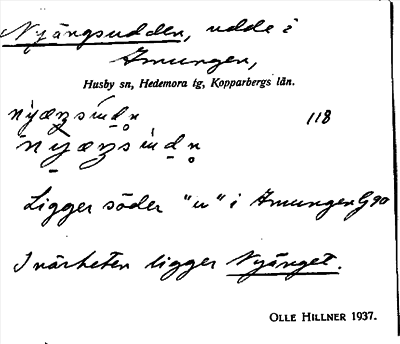 Nyängsudden, udde i
Amungen,
Husby sn, Hedemora tg, Kopparbergs län.
118
Ligger söder "u" i Amungen G 90
I närheten ligger Nyänget.
OLLE HILLNER 1937.